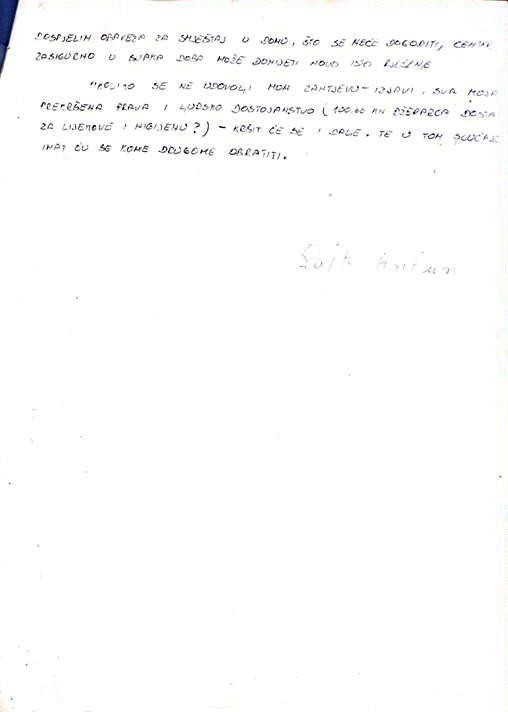 DOSPJELIH OBAVEZA ZA SMJEŠTAJ U DOMU, ŠTO SE NEĆE DOGODITI, CENTAR
ZASIGURNO U SVAKA DOBA MOŽE DONIJETI NOVO ISTO RJEŠENJE
UKOLIKO SE NE UDOVOLJI MOM ZAHTJEVU - IZJAVI, SVA MOJA
PREKRŠENA PRAVA I LJUDSKO DOSTOJANSTVO (100,00 KN DŽEPARCA DOSTA
ZA LIJEKOVE I HIGIJENU?) - KRŠIT ĆE SE I DALJE. TE U TOM SLUČAJU
IMAT ĆU SE KOME DRUGOME OBRATITI.
Antun